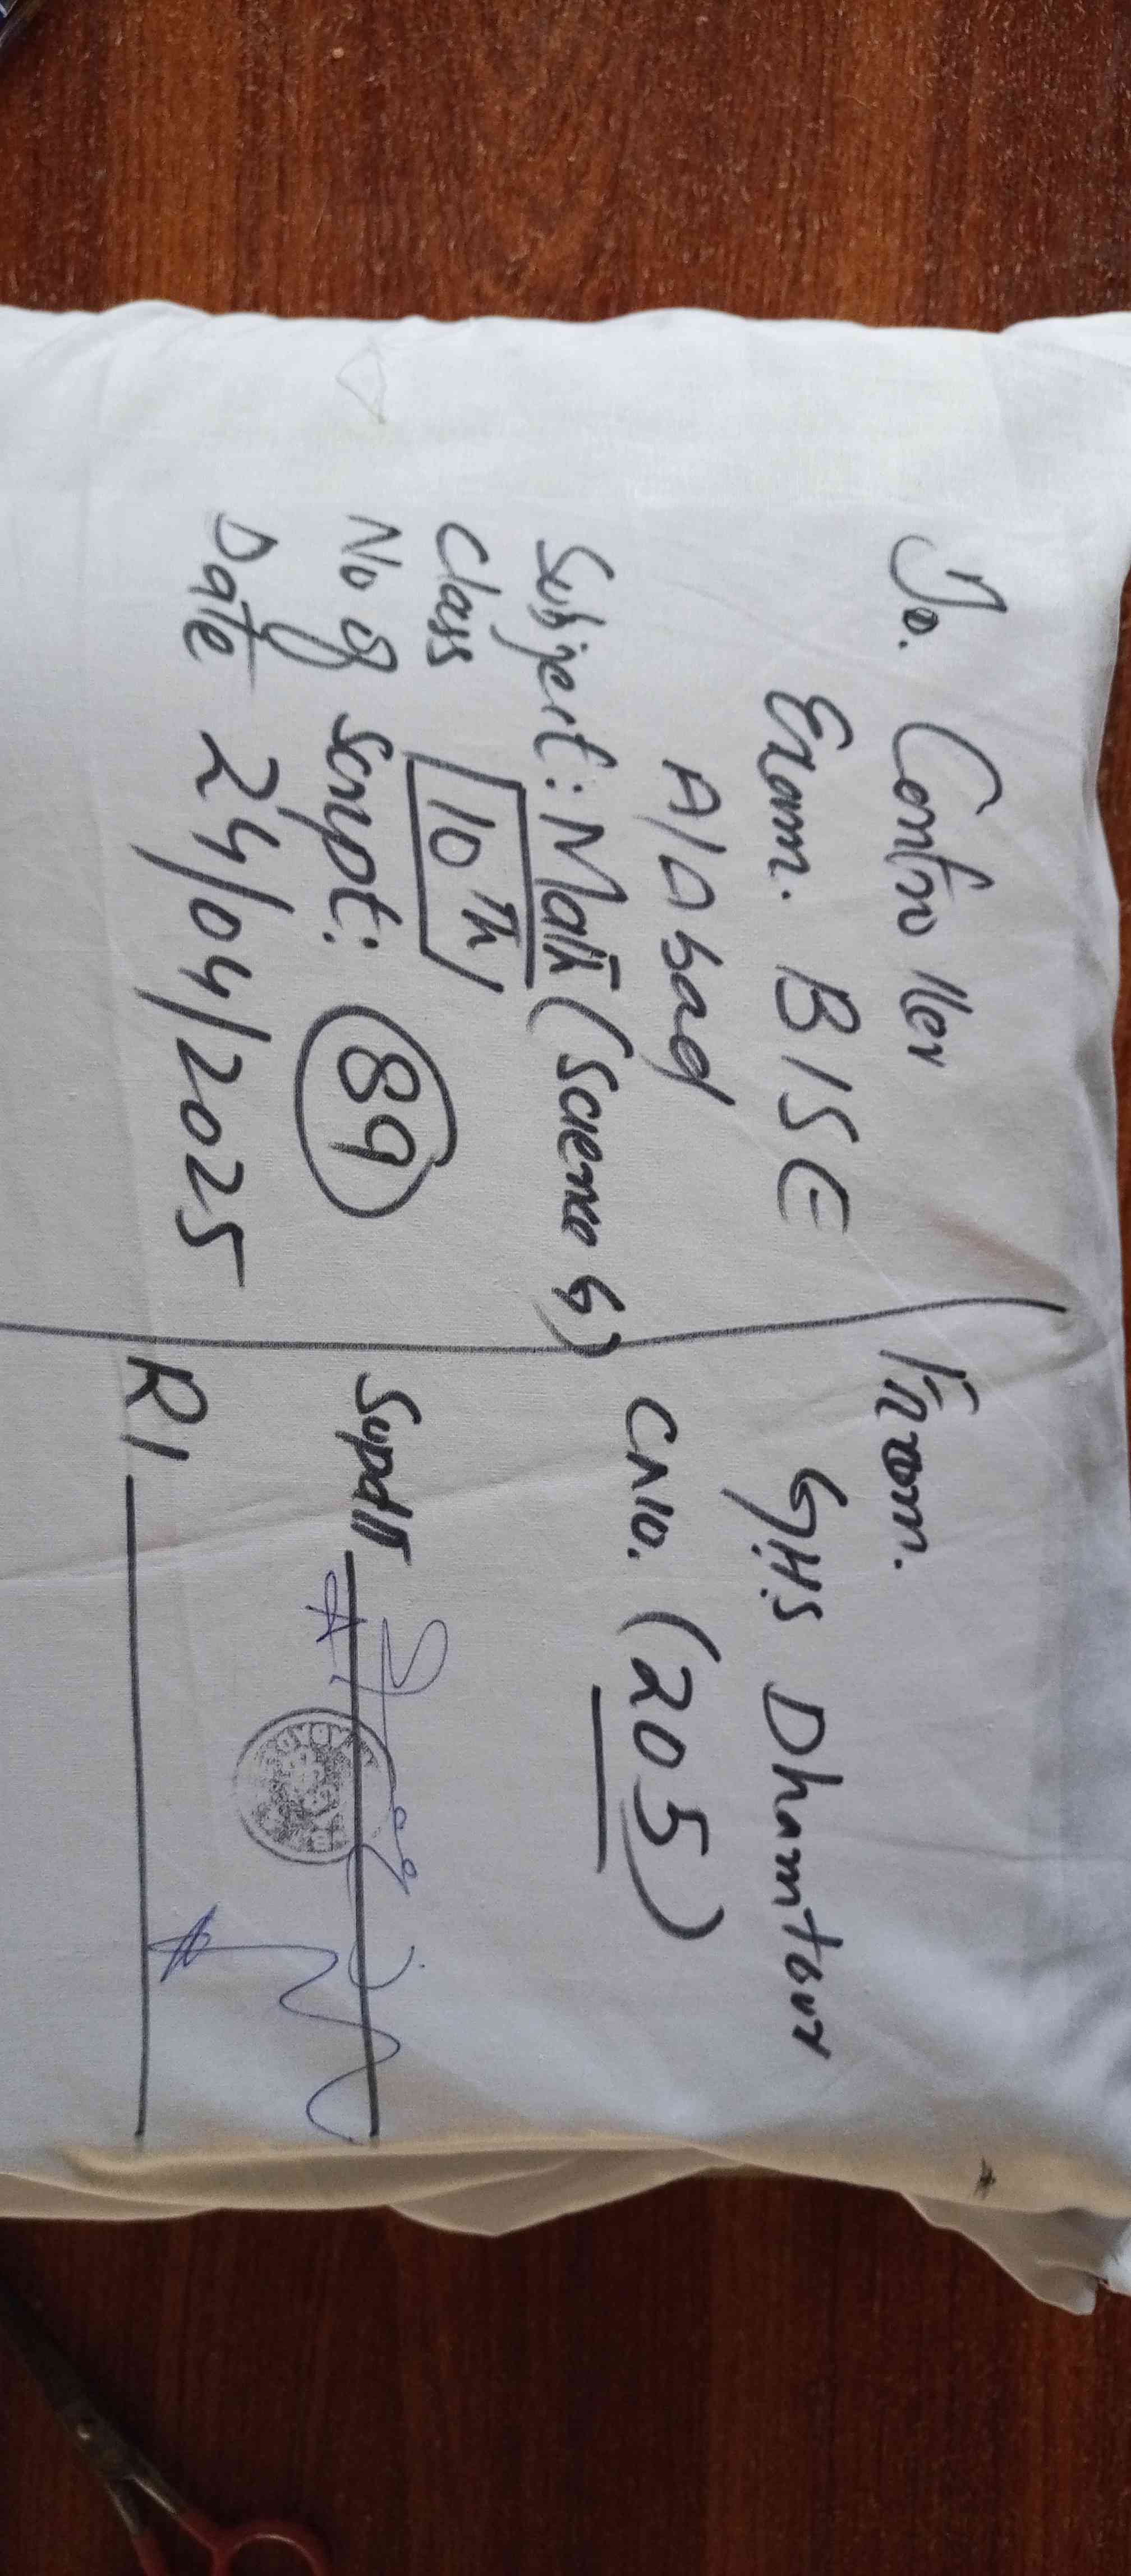 To. Controller
Exam. BISE
A/Abad
Subject: Math (Science G)
Class 10th
No of script: 89
Date 24/04/2025
From.
GHS Dhamtour
C No. (205)
Supdtt
RI